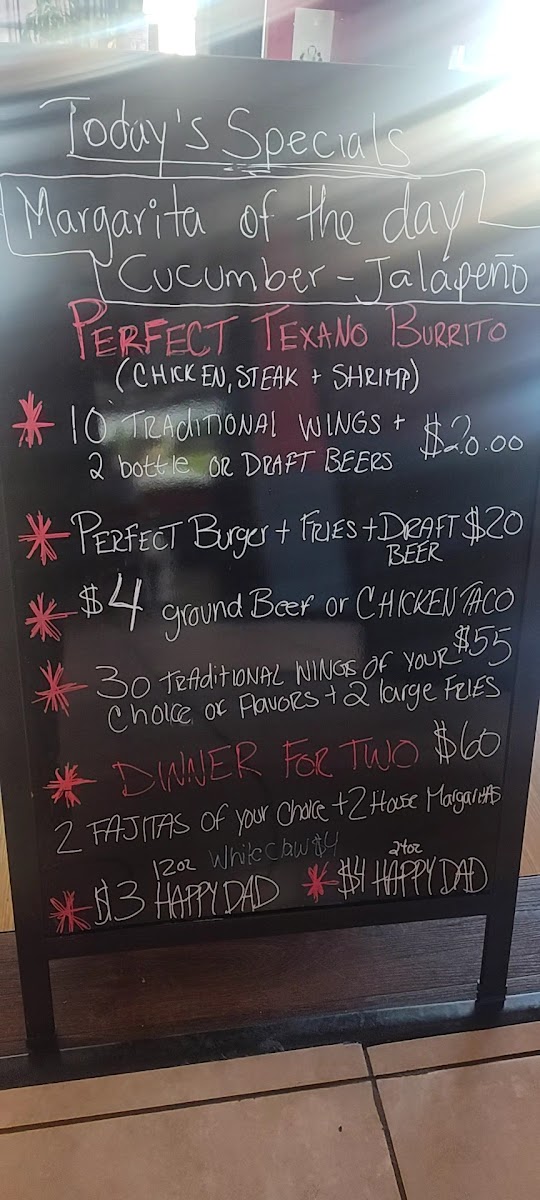 Today's Specials
Margarita of the day
Cucumber - Jalápeño
PERFECT TEXANO BURRITO
(CHICKEN, STEAK + SHRIMP)
* 10 TRADITIONAL WINGS + $20.00
2 bottle OR DRAFT BEERS
* PERFECT Burger + FRIES + DRAFT $20
BEER
* $4 ground Beef or CHICKEN TACO
* 30 TRADITIONAL WINGS OF YOUR $55
Choice of Flavors + 2 large FRIES
* DINNER FOR TWO $60
2 FAJITAS OF your Choice + 2 House Margaritas
12oz White Claw $4 24oz
* $3 HAPPY DAD * $4 HAPPY DAD